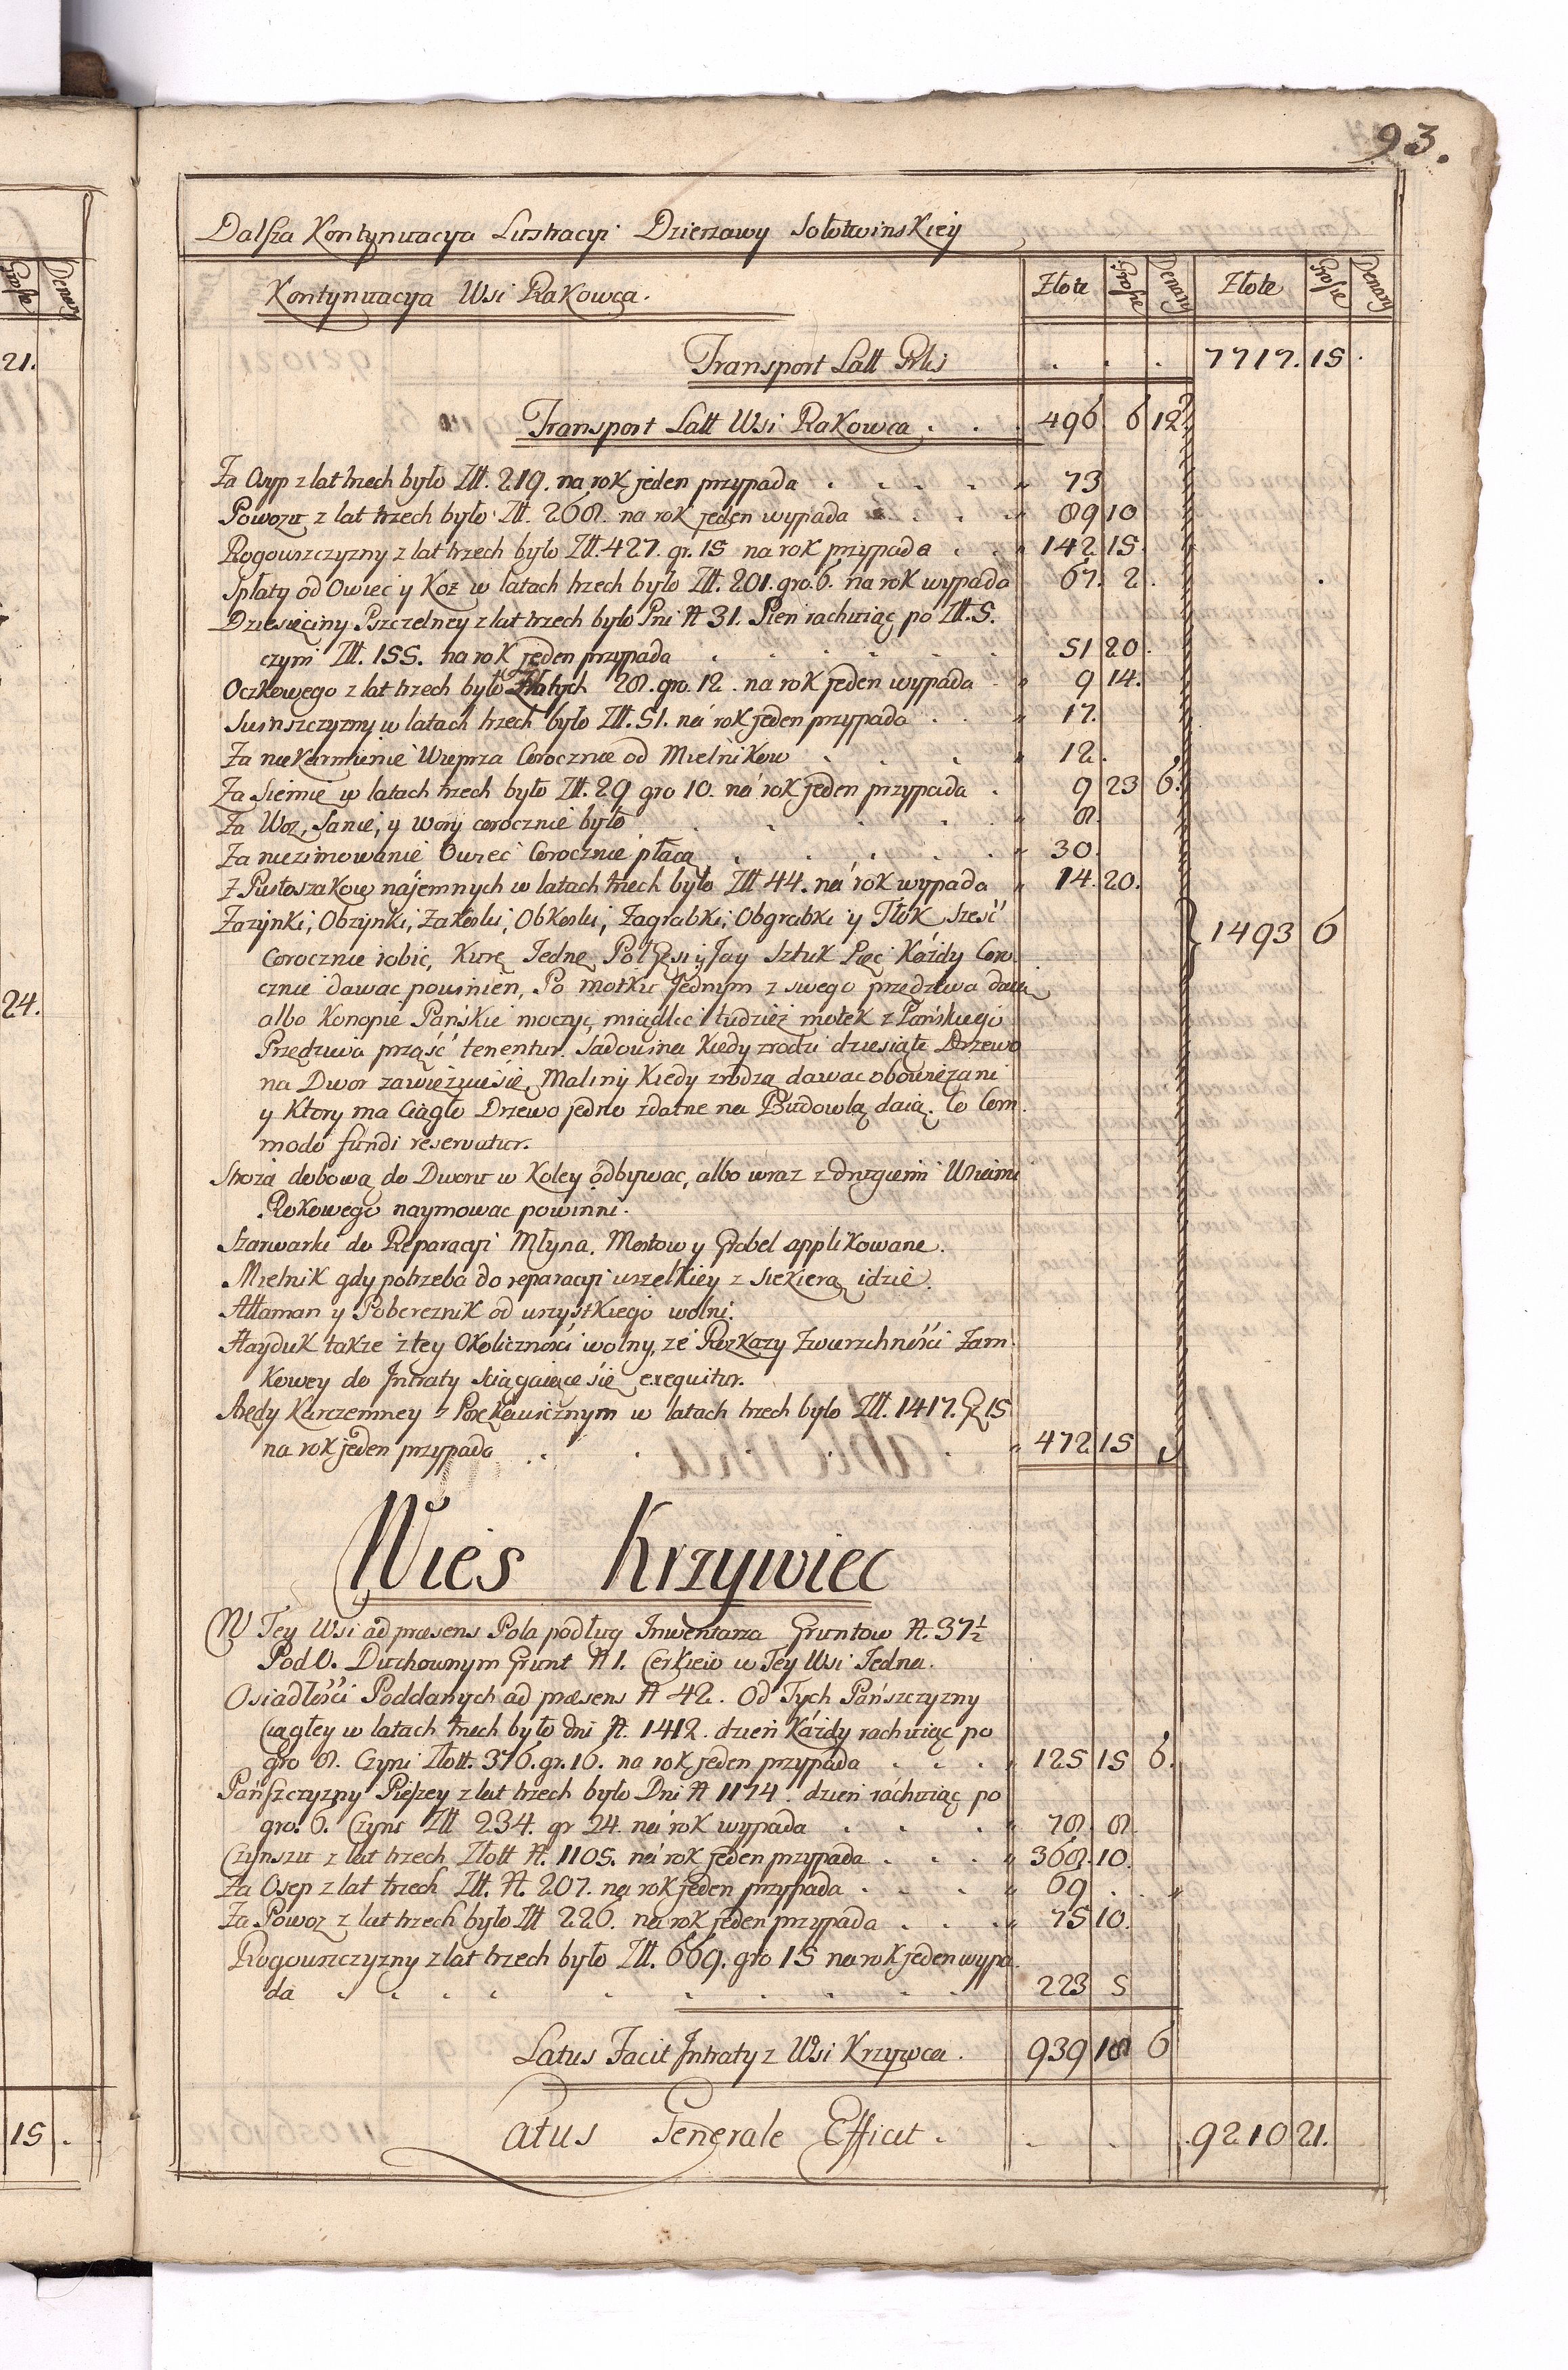 93.
Dalsza Kontynuacya Lustracyi Dzierzawy Sołotwinskiey
Kontynuacya Wsi Rakowca.
Złote Grosze Denary Złote Grosze Denary
Grosze Denary
Transport Latt Plis . . . 7717. 15.
21.
Transport Latt Wsi Rakowca . . . 496 6 12
Za Osyp z lat trzech było Złł. 219. na rok jeden przypada . . . . 73
Powozu z lat trzech było Złł. 268. na rok jeden wypada . . . 89 10
Rogowszczyzny z lat trzech było Złł. 427. gr. 15 na rok przypada . . 142 15.
Spłaty od Owiec y Koz w latach trzech było Złł. 201. gro. 6. na rok wypada 67. 2.
Dziesięciny Pszczelney z lat trzech było Pni N 31. Pien rachuiąc po Złł. 5.
czyni Złł. 155. na rok jeden przypada . . . . . 51 20.
Oczkowego z lat trzech było Złotych 28. gro. 12. na rok jeden wypada . 9 14.
w latach trzech było Złł. 51. na rok jeden przypada . . 17.
Za niekarmienie Wieprza Corocznie od Mielnikow . . . 12.
Za Siemie w latach trzech było Złł. 29 gro 10. na rok jeden przypada . 9 23 6.
Za Woz, Sanie, y wory corocznie było . . . . . 8.
Za niezimowanie Owiec Corocznie płacą . . . . . 30.
Z Pustoszakow najemnych w latach trzech było Złł 44. na rok wypada 14. 20.
Zazynki, Obzynki, Zakoski, Obkoski, Zagrabki, Obgrabki y Tłok Szesć
1493 6
Corocznie robic, Kurę Jednę, Poł Gęsi y Jay Sztuk Pięc Kazdy Coro
cznie dawac powinien, Po motku Jednym z swego przędziwa daią
24.
albo Konopie Panskie moczyc, miądlic tudziez motek z Panskiego
Przędziwa prząść tenentur. Sadowina kiedy zrodzi dziesiąte Drzewo
na Dwor zawięzuie się, Maliny Kiedy zrodzą dawac obowiązani
y Ktory ma Ciągło Drzewo jedno zdatne na Budowlą daią. Co Com
modo fundi reservatur.
Stroza dobową do Dworu w Koley odbywac, albo wraz z drugiemi Wsiami
Rokowego naymowac powinni.
Szarwarki do Reparacyi Młyna, Mostow y Grobel applikowane.
Mielnik gdy potrzeba do reparacyi wszelkiey z siekierą idzie.
Attaman y Pobereznik od wszystkiego wolni.
Hayduk takze z tey Okolicznosci wolny, ze Rozkazy Zwierzchnosci Zam
kowey do Intraty sciągaiące się exequitur.
Arędy Karczemney z Porękawicznym w latach trzech było Złł. 1417. g 15
na rok jeden przypada . . . . . 472 15
Wies Krzywiec
W Tey Wsi ad præsens Pola podług Inwentarza Gruntow N. 37½
Pod O. Duchownym Grunt N 1. Cerkiew w Tey Wsi Jedna.
Osiadłości Poddanych ad præsens N 42. Od Tych Pańszczyzny
Ciągłey w latach trzech było dni N. 1412. dzien Kazdy rachuiąc po
gro 8. Czyni Złott. 376. gr. 16. na rok jeden przypada . . . 125 15 6.
Pańszczyzny Pieszey z lat trzech było Dni N 1174. dzien rachuiąc po
gro. 6. Czyni Złł 234. gr 24. na rok wypada . . . 78. 8.
Czynszu z lat trzech Złott N. 1105. na rok jeden przypada . . . 368. 10.
Za Osep z lat trzech Złł. N. 207. na rok jeden przypada . . . 69 . .
Za Powoz z lat trzech było Złł 226. na rok jeden przypada . . . 75 10.
Rogowszczyzny z lat trzech było Złł. 669. gro 15 na rok jeden wypa
da . . . . . . . . . 223 5
Latus Facit Intraty z Wsi Krzywca. 939 18 6
15 .
Latus Generale Efficit. . . . 9210 21.